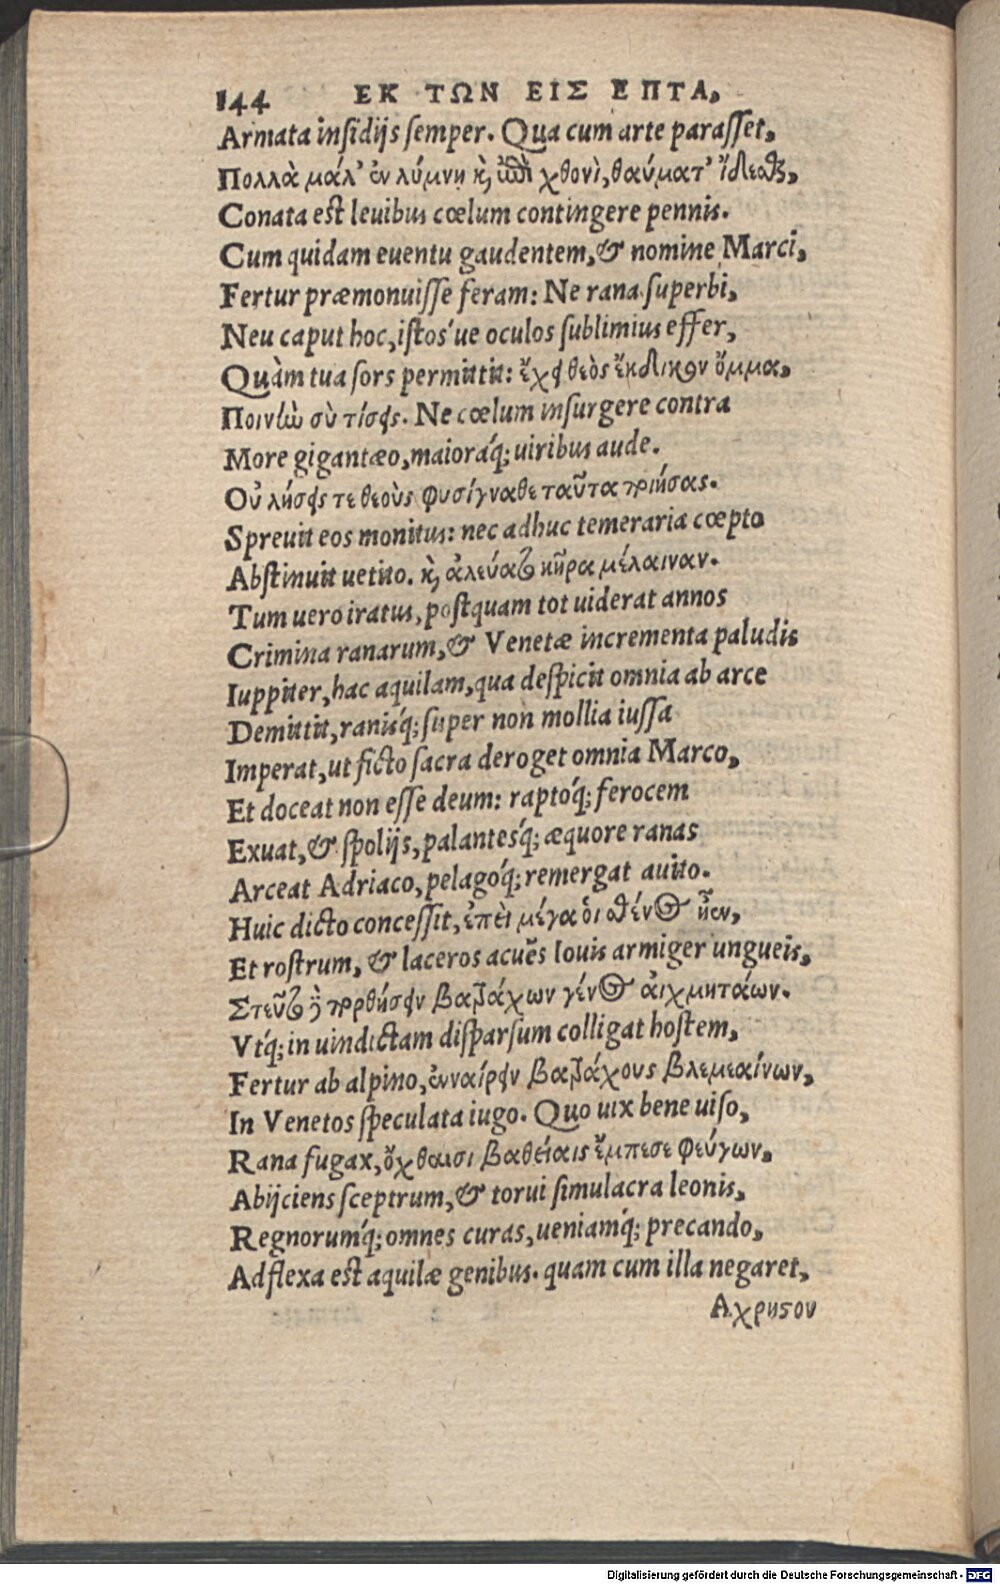 144 ΕΚ ΤΩΝ ΕΙΣ ΕΠΤΑ,
Armata insidijs semper. Qua cum arte parasset,
Πολλὰ μάλ' ἐν λύμνῃ κ, ἐπὶ χθονὶ, θαύματ' ἴδεσθς,
Conata est leuibus cœlum contingere pennis.
Cum quidam euentu gaudentem, & nomine Marci,
Fertur præmonuisse feram: Ne rana superbi,
Neu caput hoc, istos'ue oculos sublimius effer,
Quàm tua sors permittit: ἔχει θεὸς ἔκδικον ὄμμα,
Ποινὴν σὺ τίσεις. Ne cœlum insurgere contra
More gigantæo, maioráq; uiribus aude.
Οὐ λήσεις τε θεοὺς φυσίγναθε ταῦτα ποιήσας.
Spreuit eos monitus: nec adhuc temeraria cœpto
Abstinuit uetito. κ, ἀλεύατο κῆρα μέλαιναν.
Tum uero iratus, postquam tot uiderat annos
Crimina ranarum, & Venetæ incrementa paludis
Iuppiter, hac aquilam, qua despicit omnia ab arce
Demittit, ranisq́; super non mollia iussa
Imperat, ut ficto sacra deroget omnia Marco,
Et doceat non esse deum: raptoq́; ferocem
Exuat, & spolijs, palantesq́; æquore ranas
Arceat Adriaco, pelagoq́; remergat auito.
Huic dicto concessit, ἐπεὶ μέγα οἱ σθένος ἦεν,
Et rostrum, & laceros acuẽs Iouis armiger ungueis,
Στεῦτο ἢ πορθήσειν βατράχων γένος αἰχμητάων.
Vtq́; in uindictam disparsum colligat hostem,
Fertur ab alpino, ἐνναίρειν βατράχους βλεμεαίνων,
In Venetos speculata iugo. Quo uix bene uiso,
Rana fugax, ὄχθαισι βαθείαις ἔμπεσε φεύγων,
Abijciens sceptrum, & torui simulacra leonis,
Regnorumq́; omnes curas, ueniamq́; precando,
Adflexa est aquilæ genibus. quam cum illa negaret,
Αχρηστον
Digitalisierung gefördert durch die Deutsche Forschungsgemeinschaft - DFG